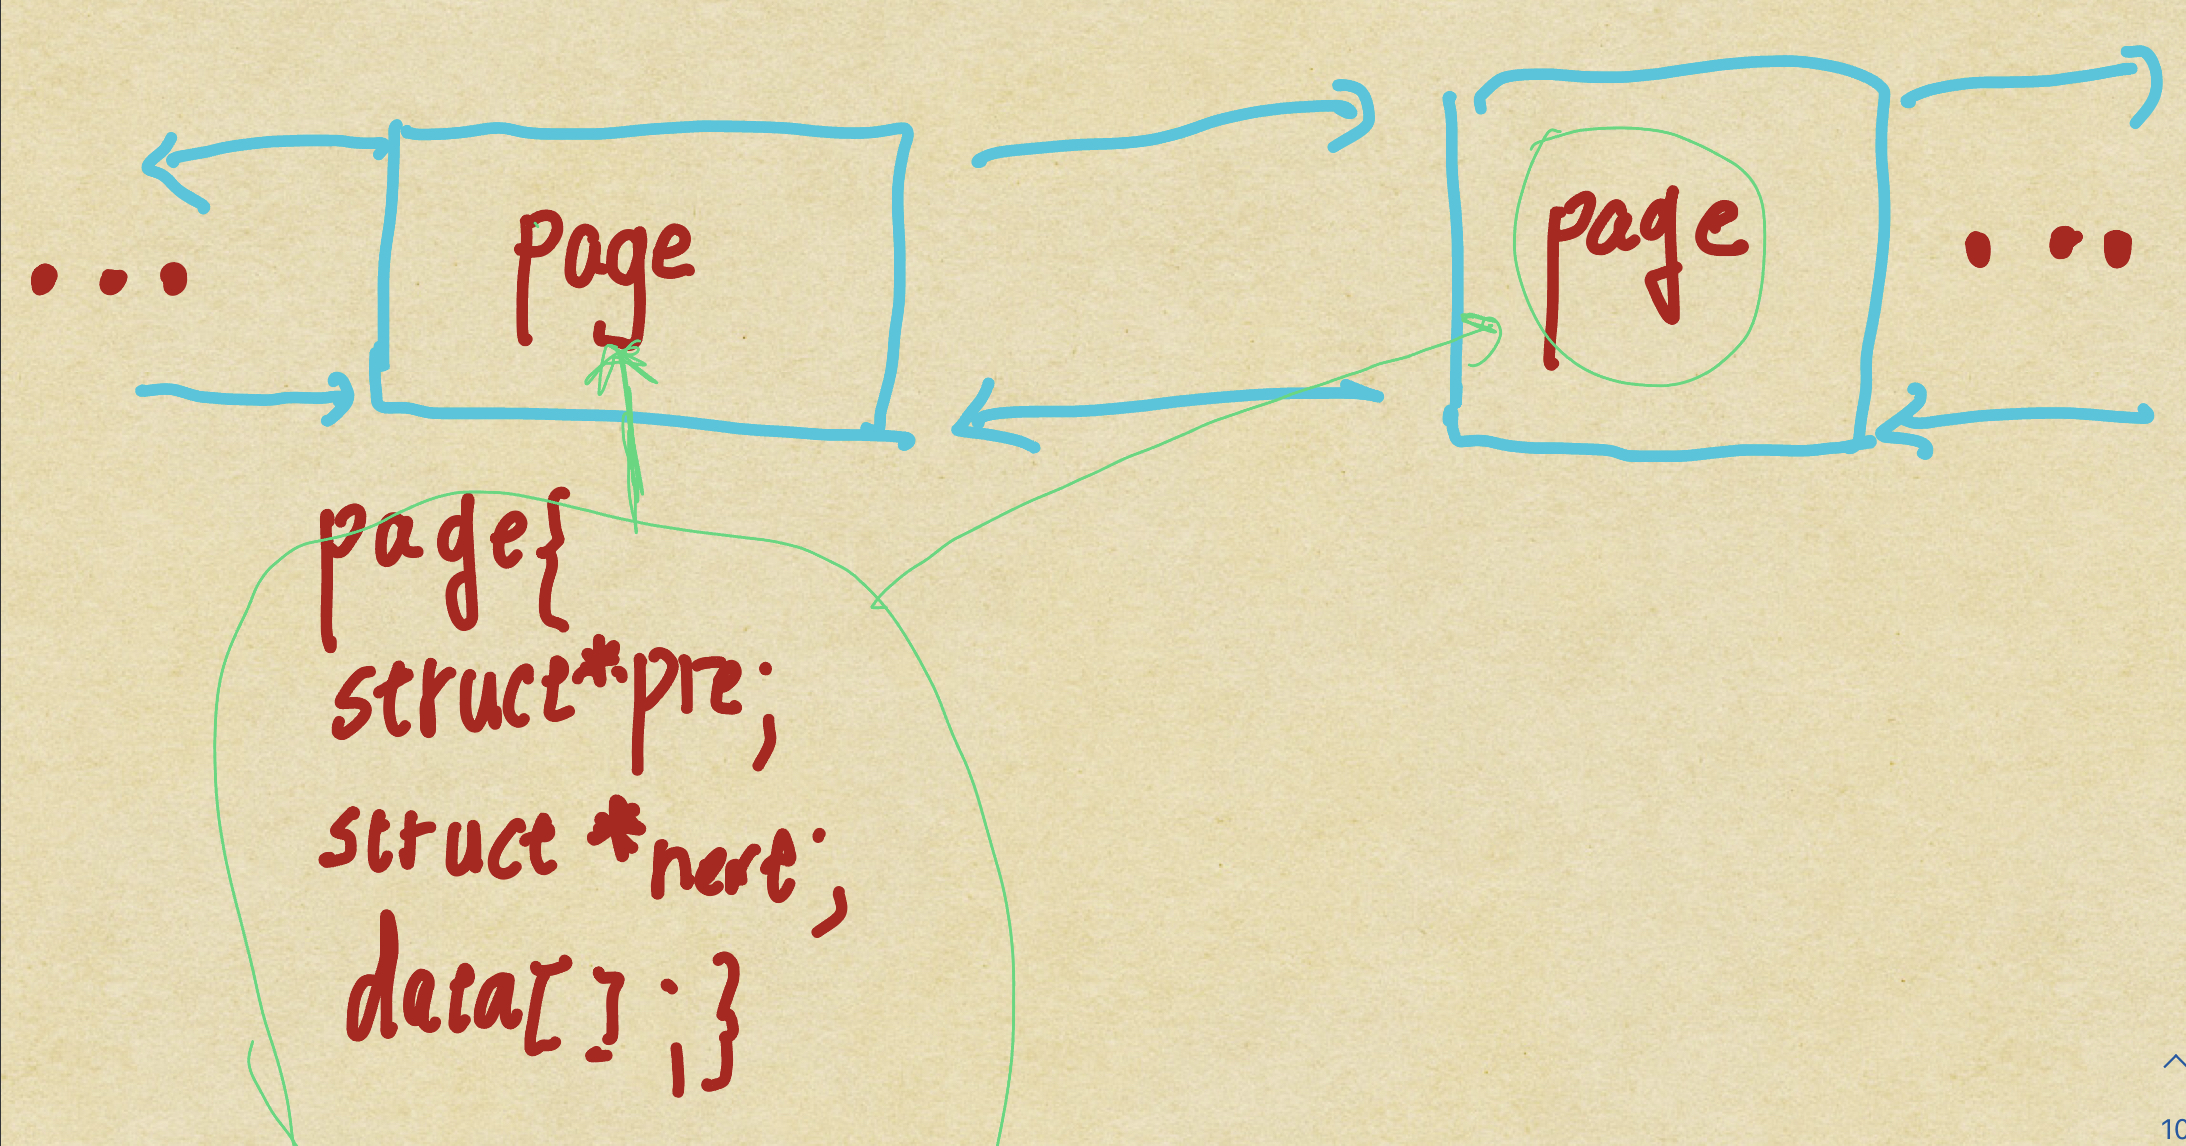 page page
page{
struct*pre;
struct *next;
data[];}
10